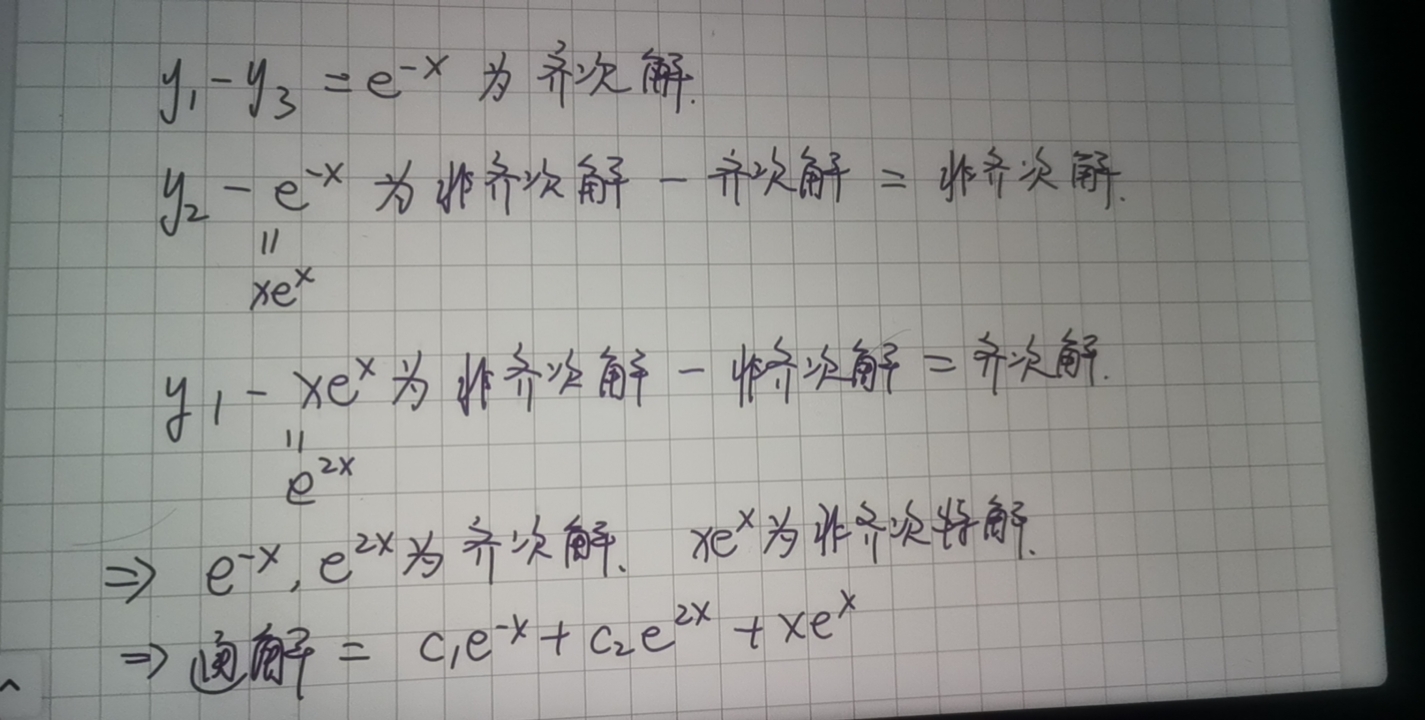 y₁ - y₃ = e⁻ˣ 为齐次解.
y₂ - e⁻ˣ 为非齐次解 - 齐次解 = 非齐次解.
||
xeˣ
y₁ - xeˣ 为非齐次解 - 非齐次解 = 齐次解.
||
e²ˣ
⇒ e⁻ˣ, e²ˣ 为齐次解. xeˣ 为非齐次特解.
⇒ 通解 = c₁e⁻ˣ + c₂e²ˣ + xeˣ